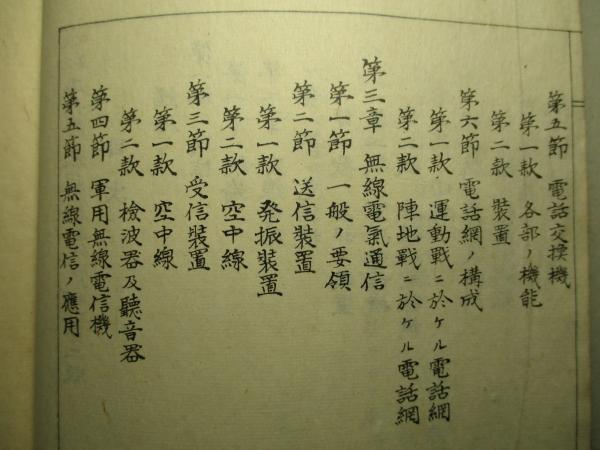 第五節　電話交換機
第一款　各部ノ機能
第二款　裝置
第六節　電話網ノ構成
第一款　運動戰ニ於ケル電話網
第二款　陣地戰ニ於ケル電話網
第三章　無線電氣通信
第一節　一般ノ要領
第二節　送信裝置
第一款　発振裝置
第二款　空中線
第三節　受信裝置
第一款　空中線
第二款　檢波器及聽音器
第四節　軍用無線電信機
第五節　無線電信ノ應用